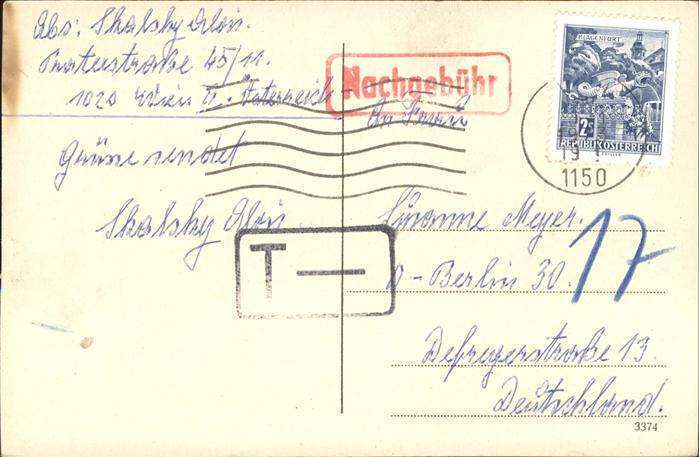 Abs: Skalsky Alois
Praterstraße 45/11.
1020 Wien Österreich
Grüsse sendet
Skalsky Alois
Nachgebühr
An Frau
Susanne Meyer.
Berlin 30.
Defregerstraße 13.
Deutschland.
T—
17
KLAGENFURT
2
REPUBLIK ÖSTERREICH
19
1150
3374